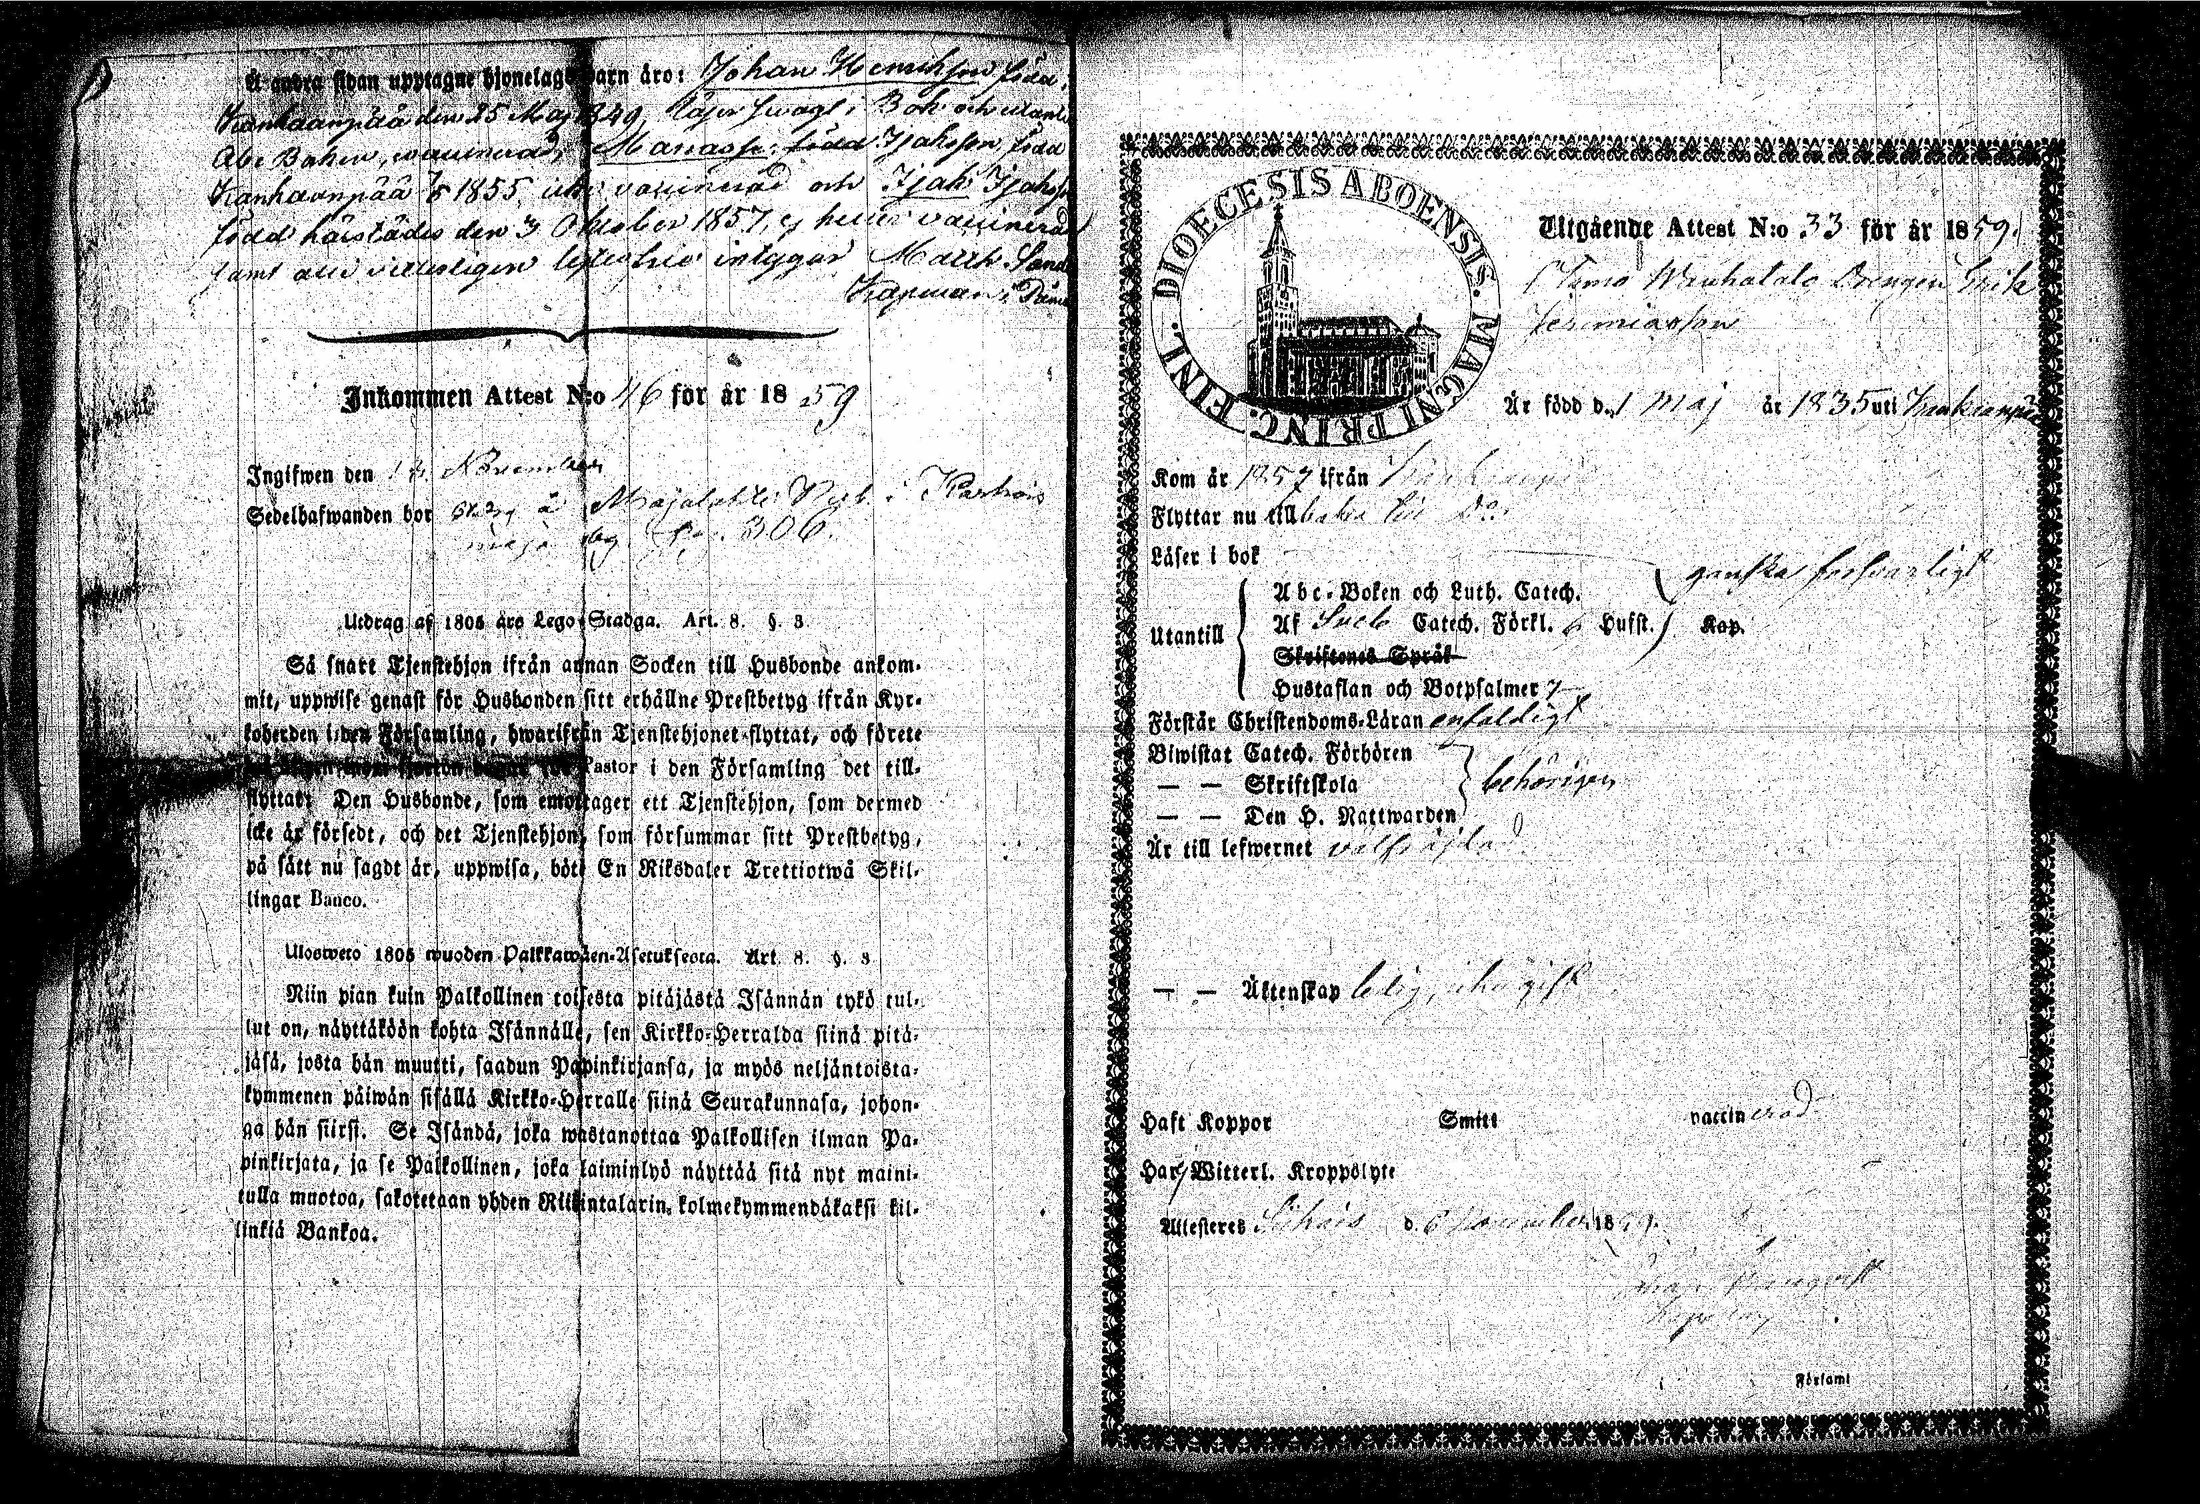 Å andra sidan upptagne hjonelags barn äro: Johan Henriksson född i
Kankaanpää den 25 Maj 1849, läser svagt i Bok och utantill
Abc Boken, vaccinerad, Manasse, född Isaksson, född
Kankaanpää 1855, icke vaccinerad och Isak Isaksson
född härstädes den 3 Oktober 1857, ej heller vaccinerad
samt intygar Matth.
Inkommen Attest N:o 46 för år 1859
Ingifwen den November
Sedelhafwanden bor å Majalahti i Karhois
pag. 306.
Utdrag af 1805 års Lego-Stadga. Art. 8. §. 3
Så snart Tjenstehjon ifrån annan Socken till Husbonde ankom-
mit, uppwise genast för Husbonden sitt erhållne Prestbetyg ifrån Kyr-
koherden i den Församling, hwarifrån Tjenstehjonet flyttat, och förete
Pastor i den Församling det till-
flyttat: Den Husbonde, som emottager ett Tjenstehjon, som dermed
icke är försedt, och det Tjenstehjon, som försummar sitt Prestbetyg,
på sätt nu sagdt är, uppwisa, böte En Riksdaler Trettiotwå Skil-
lingar Banco.
Uloswero 1805 wuoden Palkkawäen-Asetuksesta. Art. 8. §. 3
Niin pian kuin Palkollinen toisesta pitäjästä Isännän tykö tul-
lut on, näyttäköön kohta Isännälle, sen Kirkko-Herralda siinä pitä-
jäsä, josta hän muutti, saadun Papinkirjansa, ja myös neljäntoista-
kymmenen päiwän sisällä Kirkko-Herralle siinä Seurakunnasa, johon-
ga hän siirsi. Se Isändä, joka wastanottaa Palkollisen ilman Pa-
pinkirjata, ja se Palkollinen, joka laiminlyö näyttää sitä nyt maini-
tulla muotoa, sakotetaan yhden Riikintalarin, kolmekymmendäkaksi kil-
linkiä Bankoa.
DIOECESIS ABOENSIS. MAGNI PRINC. FINL.
Utgående Attest N:o 33 för år 1859.
Drengen Erik
Jeremiasson
Är född d. 1 Maj år 1835 uti Kankaanpää
Kom år 1857 ifrån Kankaanpää
Flyttar nu till baka till D:o
Läser i bok
Abc-Boken och Luth. Catech. ganska försvarligt
Utantill Af Sveb Catech. Förkl. 6 Hufst. Kap.
Skriftenes Språk
Hustaflan och Botpsalmer 7
Förstår Christendoms-Läran enfaldigt
Biwistat Catech. Förhören
— — Skriftskola behörigen
— — Den H. Nattwarden
Är till lefwernet välfräjdad
— — Äktenskap ledig, icke gift
Haft Koppor Smitt vaccinerad
Har ej Witterl. Kroppslyte
Attesteres d. 6 November 1859.
Församl